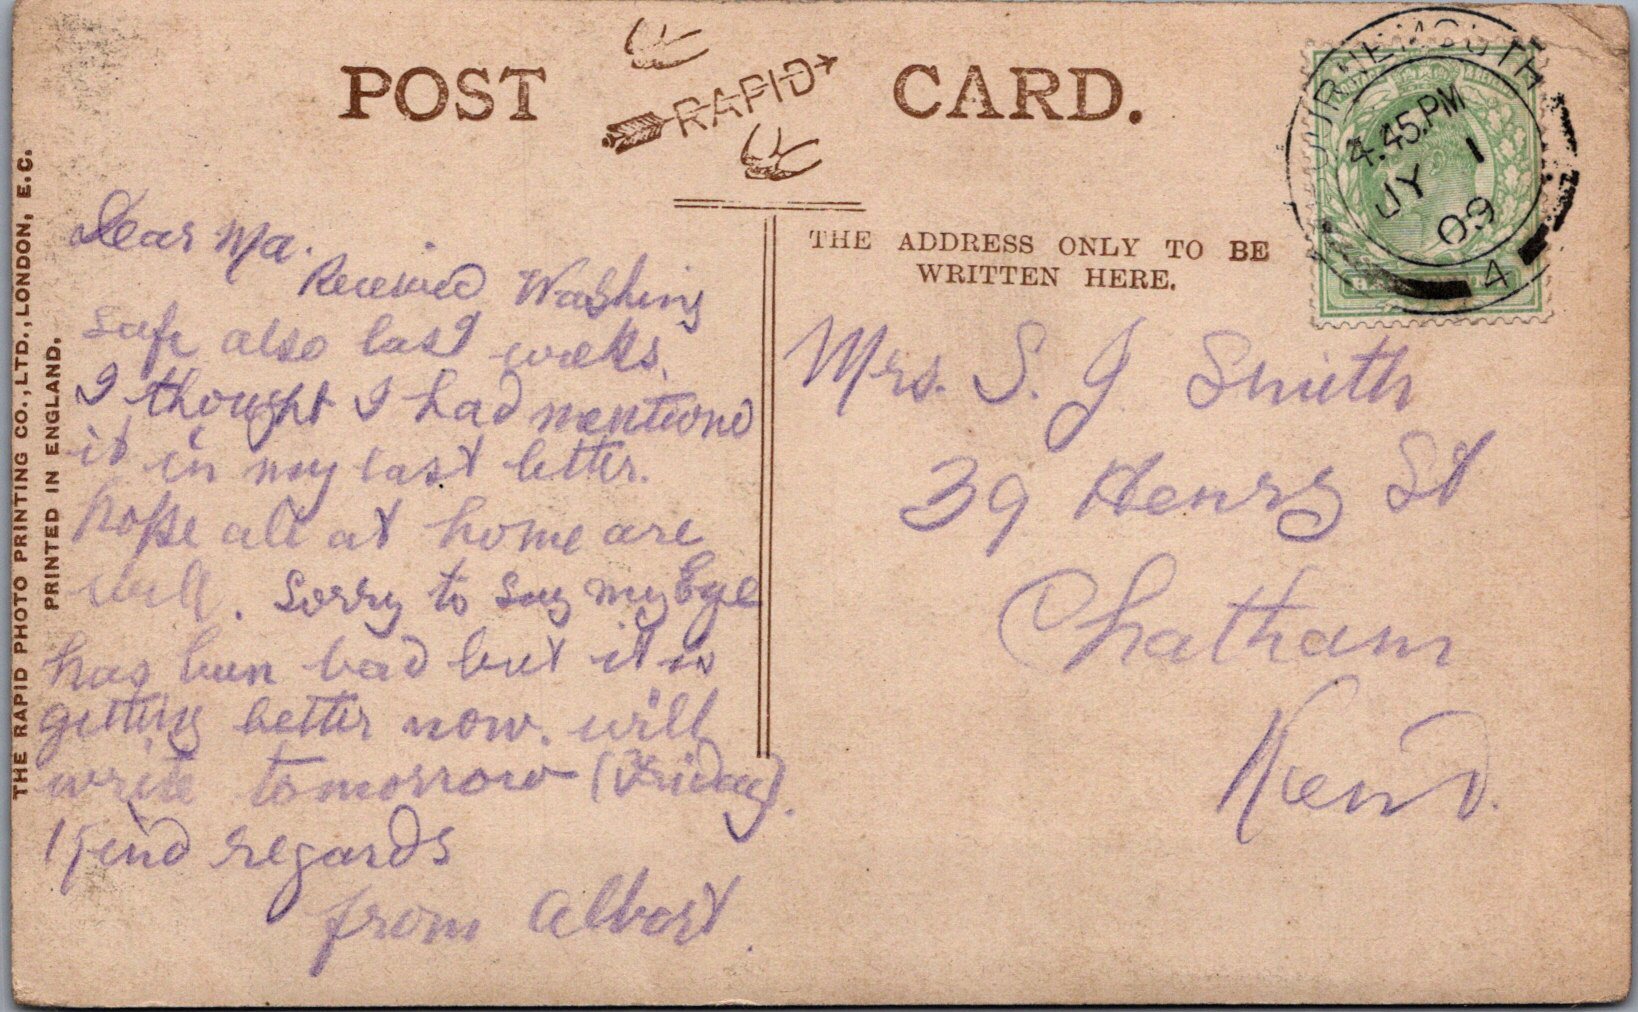 POST RAPID CARD.
THE RAPID PHOTO PRINTING CO., LTD., LONDON, E.C.
PRINTED IN ENGLAND.
Dear Ma.
Received Washing
safe also last weeks.
I thought I had mentioned
it in my last letter.
hope all at home are
well. Sorry to say my Eye
has been bad but it is
getting better now. will
write tomorrow (Friday).
Kind regards
from Albert.
THE ADDRESS ONLY TO BE
WRITTEN HERE.
Mrs. S. J. Smith
39 Henry St
Chatham
Kent.
BOURNEMOUTH
4.45.PM
JY 1
09
4